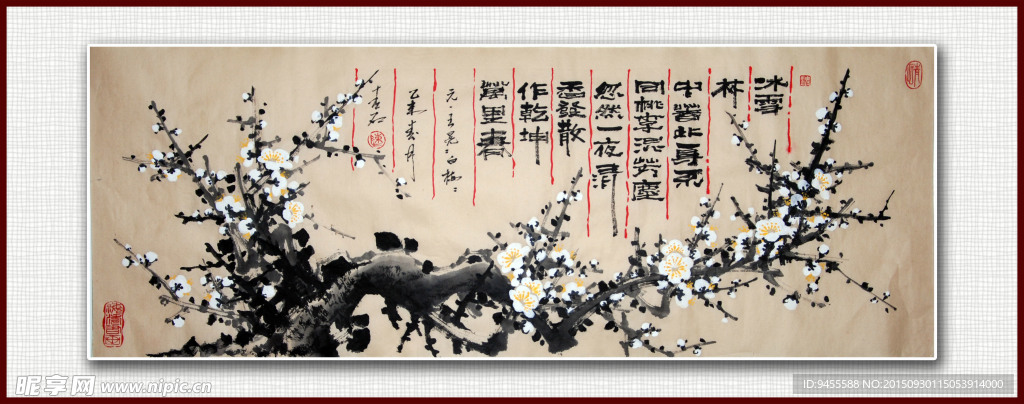 冰雪
林
中著此身不
同桃李混芳塵
忽然一夜清
香發散
作乾坤
萬里春
元·王冕·白梅
乙未
昵享网 www.nipic.cn
ID:9455588 NO:20150930115053914000